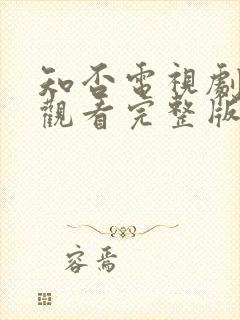 知否電視劇
觀看完整版
容焉